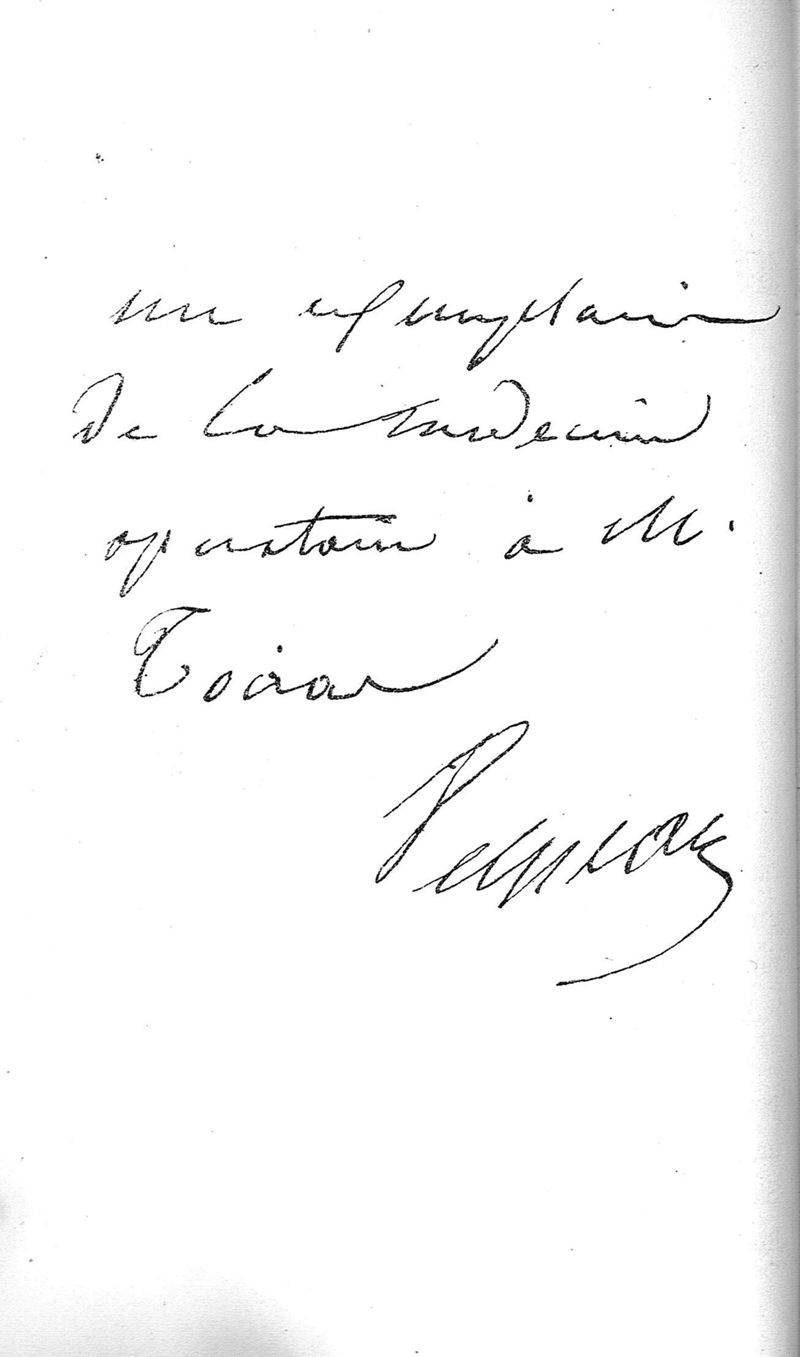 un exemplaire
de la médecine
operatoire à M.
Toirac
Velpeau